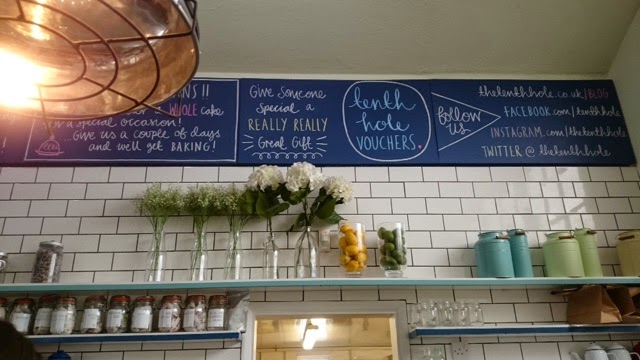 WHOLE cake
for a special occasion!
Give us a couple of days
and we'll get BAKING!
Give Someone
Special a
REALLY REALLY
Great Gift
tenth
hole
VOUCHERS.
follow
us
thetenthhole.co.uk/BLOG
FACEBOOK.com/tenthhole
INSTAGRAM.com/thetenthhole
TWITTER @thetenthhole